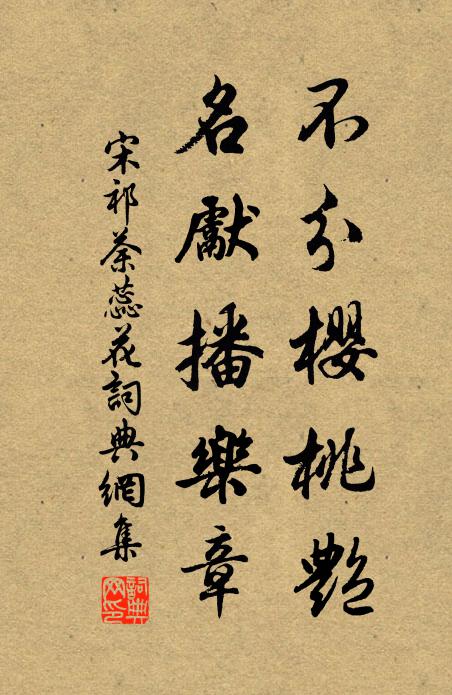 不分櫻桃艷
名獻播樂章
宋祁荼蕊花詞典網集
詞典網印